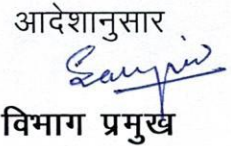 आदेशानुसार
विभाग प्रमुख